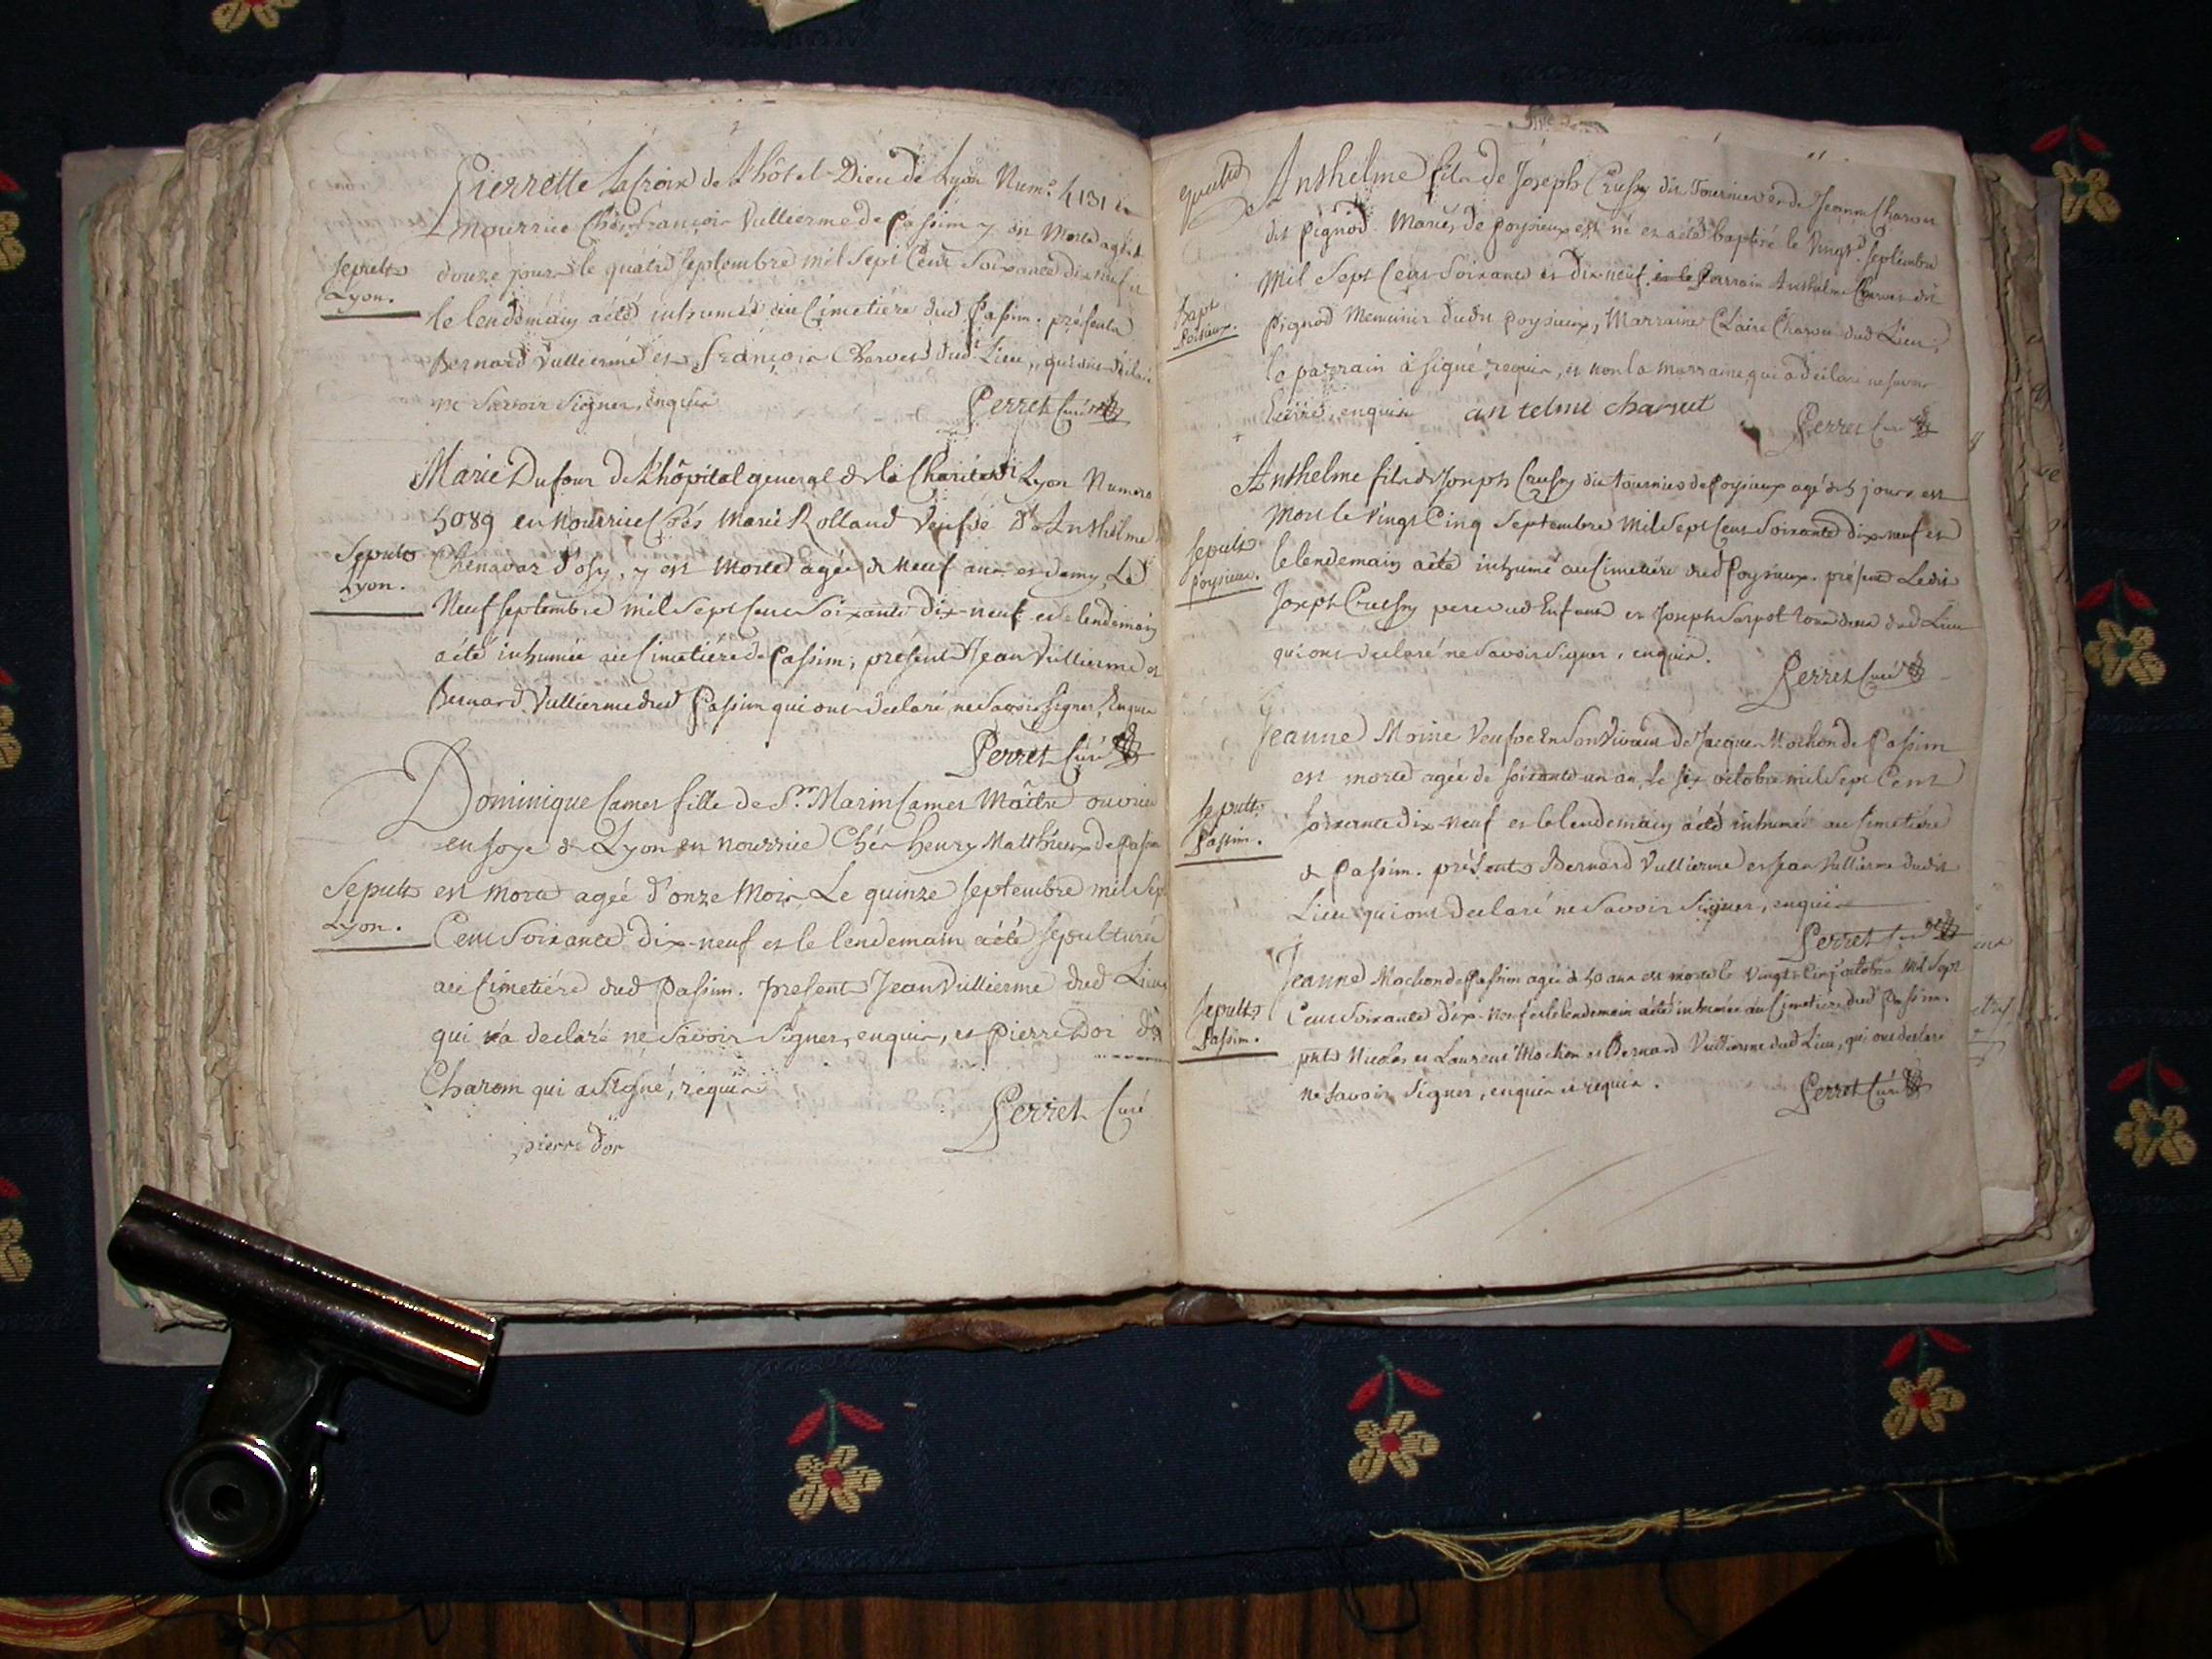 Pierrette la Croix de L'hôtel-Dieu de Lyon Num.° 4131 en
nourrice Chés françois Vullierme de Passim y est Morte agée de
Sepult.
Lyon.
douze jours le quatre septembre mil Sept Cent Soixante dix neuf et
le lendemain a été inhumée au Cimetière dud Passim. présents
Bernard Vullierme et françois Charvet dud Lieu, qui ont déclaré
ne Savoir Signer, enquis
Perret Curé
Marie Dufour de L'hôpital general de la Charité de Lyon Numero
5089 en nourrice Chés Marie Rolland Veufve d'Anthelme
Sepult
Lyon.
Chenavaz d'osy, y est Morte agée de Neuf ans et demy Le
Neuf septembre mil Sept Cent Soixante Dix-neuf et le lendemain
a été inhumée au Cimetière de Passim, présents Jean Vullierme et
Bernard Vullierme dud Passim qui ont declaré ne Savoir Signer, Enquis
Perret Curé
Dominique Camet fille de Sr. Marin Camet Maître ouvrier
en soye de Lyon en nourrice Chés henry Matthieux de Passim
Sepult
Lyon.
est morte agée d'onze Mois Le quinze septembre mil Sept
Cent Soixante dix-neuf et le lendemain a été sépulturée
au Cimetière dud Passim. present Jean Vullierme dud Lieu
qui a declaré ne Savoir Signer, enquis, et pierre Dor
qui a Signé, requis
Perret Curé
pierre dor
Anthelme fils de Joseph Crussy dit Tournier et de Jeanne Charvet
dit pignod Mariés de poysieux est né et a été baptisé le Vingt septembre
Mil Sept Cent Soixante et Dix-neuf. Parrain Anthelme Charvet dit
Bapt.
Poisieux.
pignod Menuisier dudit poysieux, Marraine Claire Charvet dud Lieu;
le parrain a signé, requis, et non la marraine qui a déclaré ne savoir
Ecrire, enquise an telme charvet
Perret Curé
Anthelme fils de Joseph Crussy dit Tournier de Poysieux agé de 5 jours est
Mort le Vingt Cinq Septembre Mil Sept Cent Soixante dix-neuf et
Sepult.
Poysieux.
le lendemain a été inhumé au Cimetière dud Poysieux. présents Ledit
Joseph Crussy pere dud Enfant et Joseph Sarpot tous deux dud Lieu
qui ont declaré ne Savoir Signer, enquis.
Perret Curé
Jeanne Moine Veufve En Son Vivant de Jacques Mochon de Passim
est morte agée de soixante un an, le six octobre mil Sept Cent
Sepult.
Passim.
Soixante dix-neuf et le lendemain a été inhumée au Cimetière
de Passim. présents Bernard Vullierme et Jean Vullierme dudit
Lieu qui ont declaré ne Savoir Signer, enquis
Perret Curé
Jeanne Mochon de Passim agée de 50 ans est morte le Vingt Cinq octobre Mil Sept
Sepult
Passim.
Cent Soixante Dix-Neuf et le lendemain a été inhumée au Cimetière dud Passim.
pnts Nicolas et Laurent Mochon et Bernard Vullierme dud Lieu, qui ont declaré
ne savoir Signer, enquis et requis.
Perret Curé